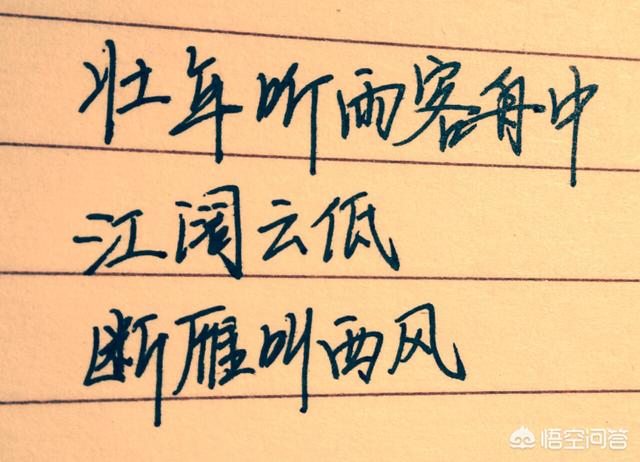 壮年听雨客舟中
江阔云低
断雁叫西风
悟空问答